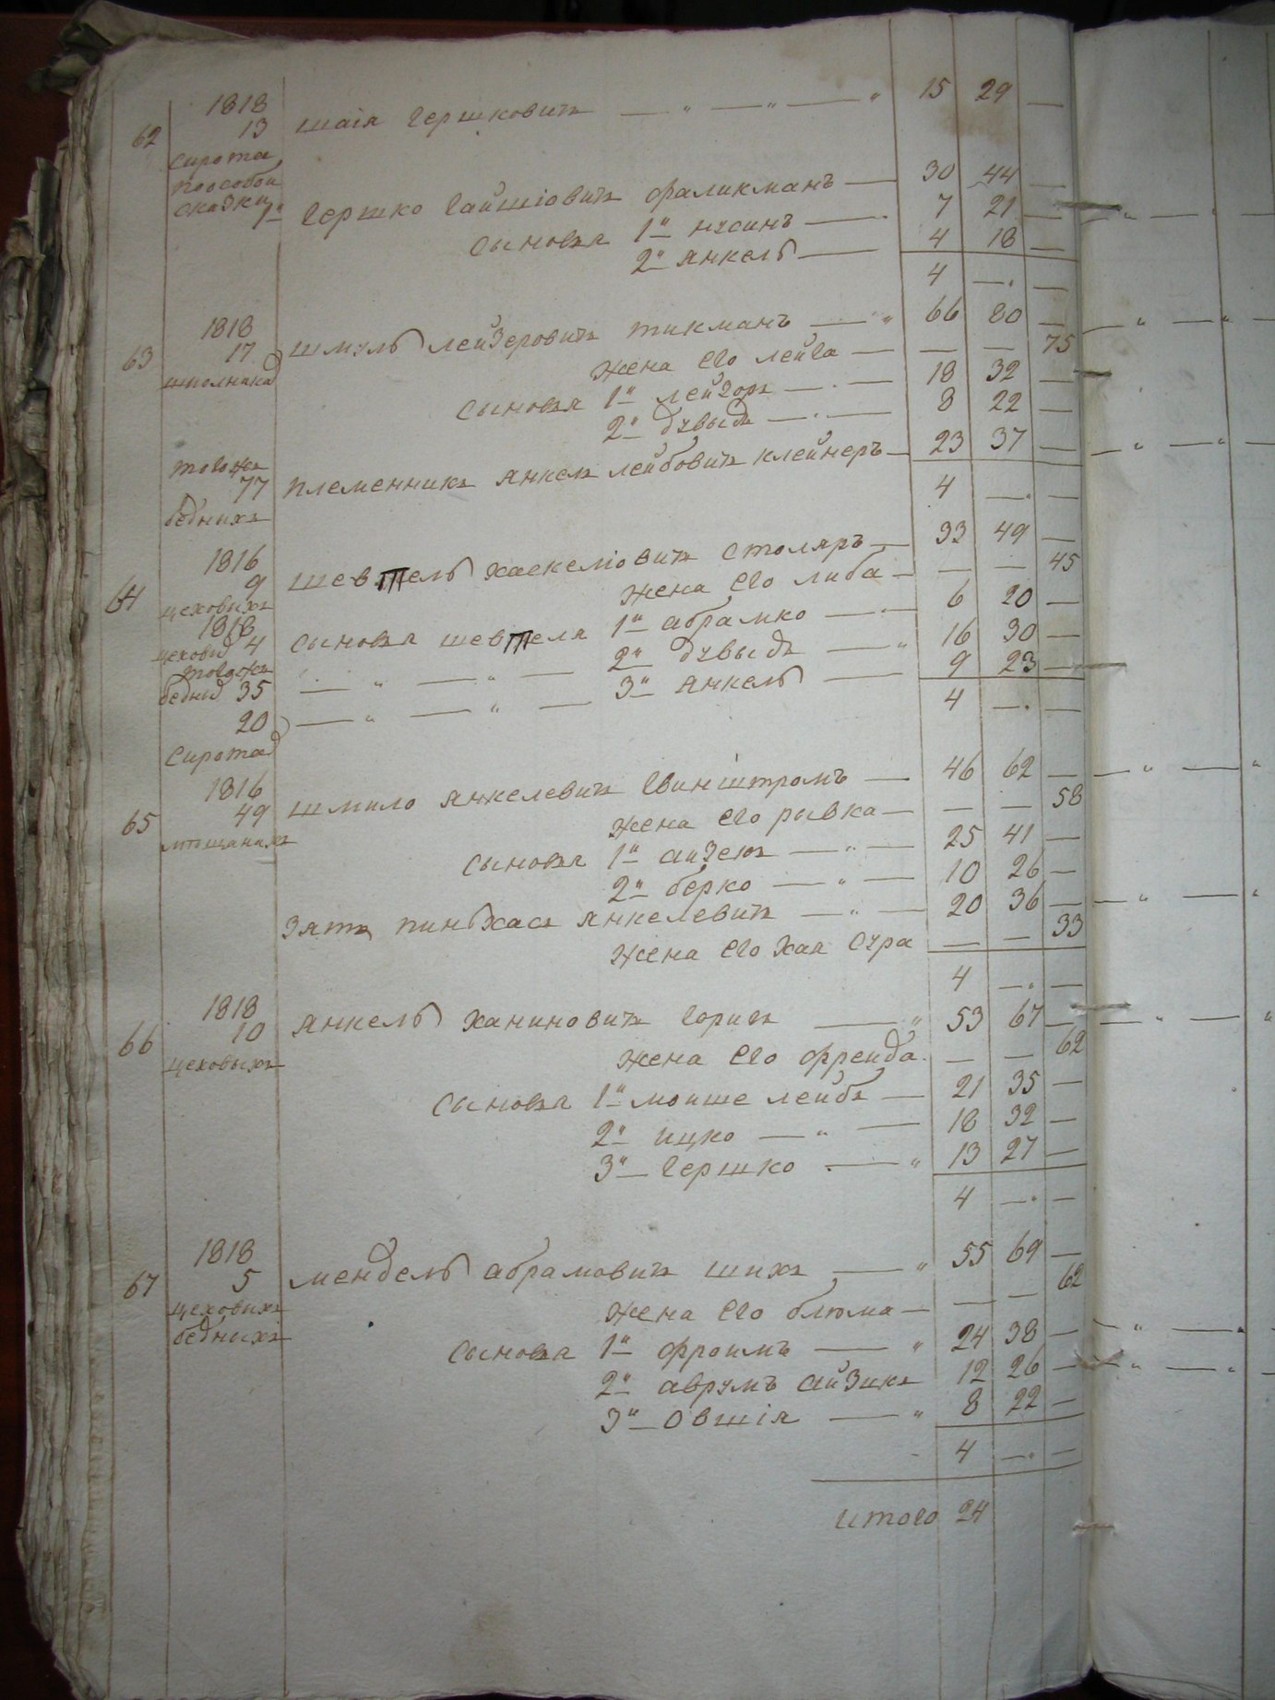 1818
62 13 шаія гершковичъ — " — " — " 15 29 —
сирота
по особой
сказки
7" гершко гаймовичъ фаликманъ — 30 44 —
сыновья 1й нусинъ — 7 21 —
2й янкель — 4 18 —
4 — —
1818
63 17 шмуль лейзеровичъ тикманъ — " 66 80 —
школника жена его лейга — — — 75
сыновья 1й лейзоръ — 18 32 —
2й дувыдъ — 8 22 —
тогожъ
77 племенникъ янкель лейбовичъ клейнеръ — 23 37 —
бѣднихъ 4 — —
1816
64 9 шевтель хаскеліовичъ столяръ — 33 49 —
цеховихъ жена его либа — — — 45
1818
цеховій 4 сыновья шевтеля 1й абрамко — 6 20 —
тогожъ
бедній 35 — " — " — 2й дувыдъ — " 16 30 —
20 — " — " — 3й янкель — 9 23 —
сирота 4 — —
1816
65 49 шмило янкелевичъ гвинштромъ — 46 62 —
мѣщанахъ жена его рывка — — — 58
сыновья 1й айзекъ — " — 25 41 —
2й берко — " — 10 26 —
зять пиньхасъ янкелевичъ — " — 20 36 —
жена его хая сура — — 33
4 — —
1818
66 10 янкель ханиновичъ горитъ — " 53 67 —
цеховыхъ жена его фрейда — — — 62
сыновья 1й мошше лейбъ — 21 35 —
2й ицко — " — 18 32 —
3й гершко — " 13 27 —
4 — —
1818
67 5 мендель абрамовичъ шихъ — " 55 69 —
цеховихъ жена его блюма — — — 62
бѣднихъ
сыновья 1й фроимъ — " 24 38 —
2й аврумъ айзикъ 12 26 —
3й овшія — " 8 22 —
4 — —
итого 24